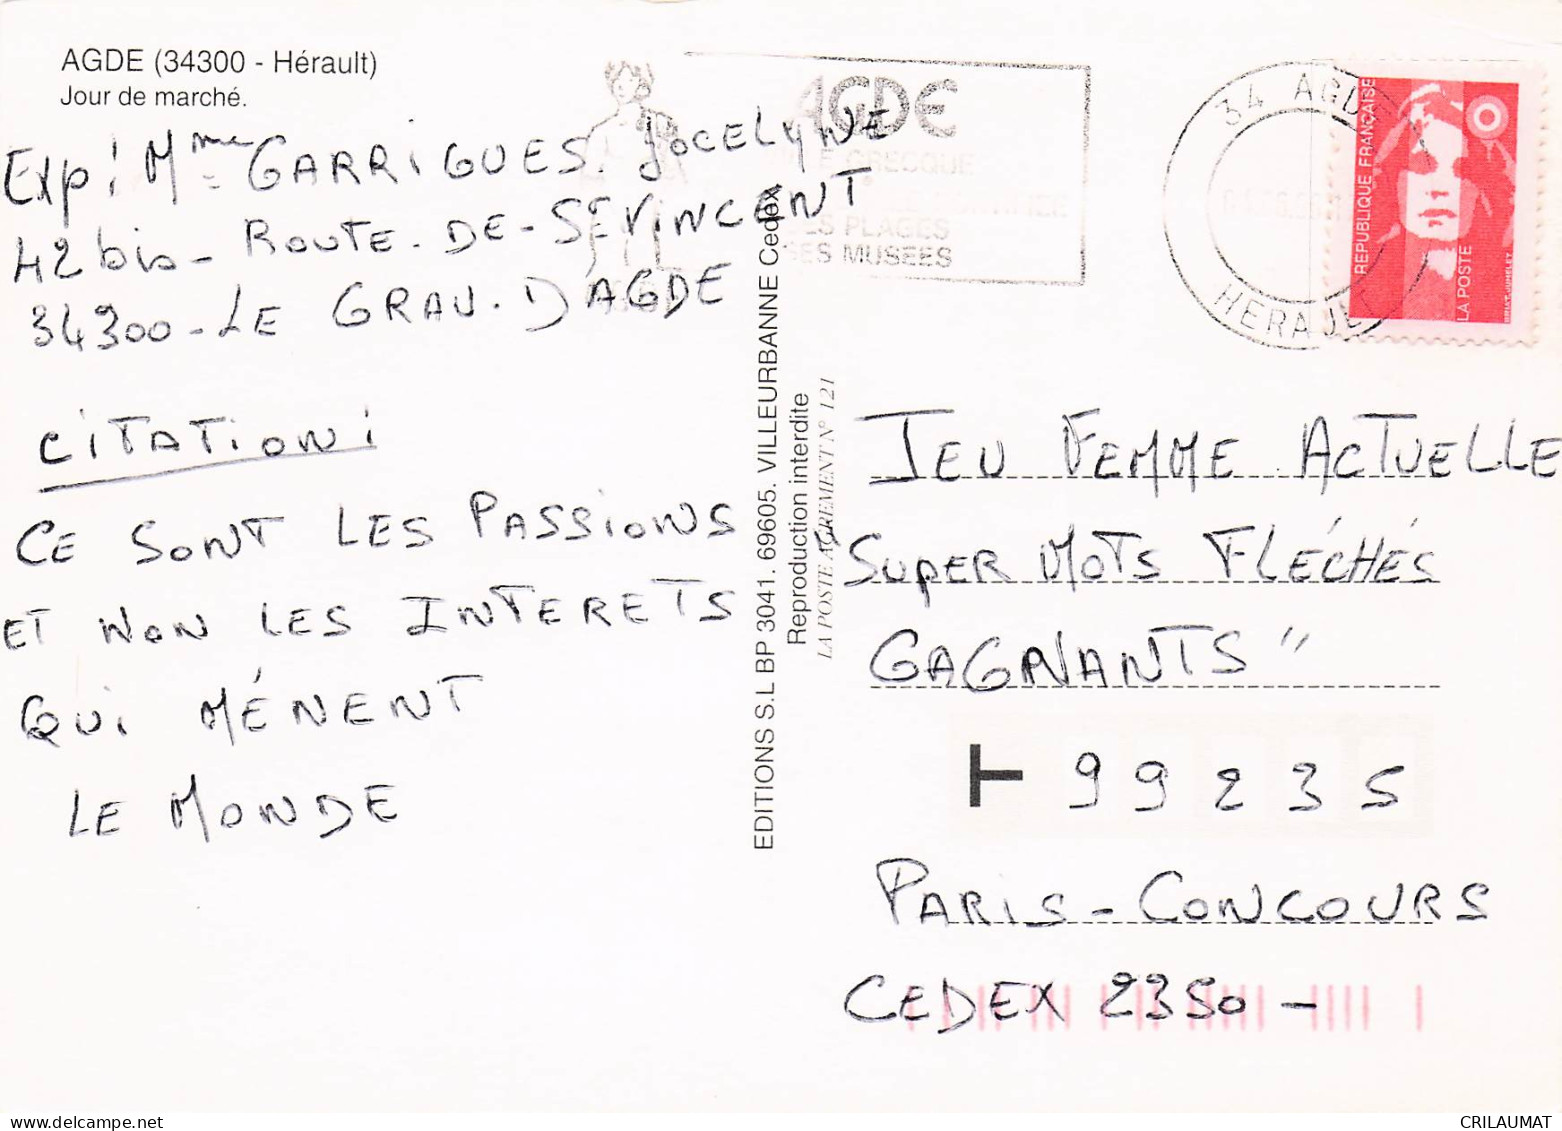 AGDE (34300 - Hérault)
Jour de marché.
Exp: Mme GARRIGUES. JOCELYNE
42 bis - ROUTE - DE - St VINCENT
34300 - LE GRAU. D'AGDE
CITATION:
CE SONT LES PASSIONS
ET NON LES INTERETS
QUI MÉNENT
LE MONDE
EDITIONS S.L BP 3041. 69605. VILLEURBANNE Cedex
Reproduction interdite
LA POSTE AGREMENT N° 121
AGDE
GRECQUE
PLAGES
SES MUSEES
34 AGDE
HERAULT
REPUBLIQUE FRANÇAISE
LA POSTE
JEU FEMME ACTUELLE
SUPER MOTS FLÉCHÉS
GAGNANTS"
T 99235
PARIS - CONCOURS
CEDEX 2350 -
delcampe.net
CRILAUMAT